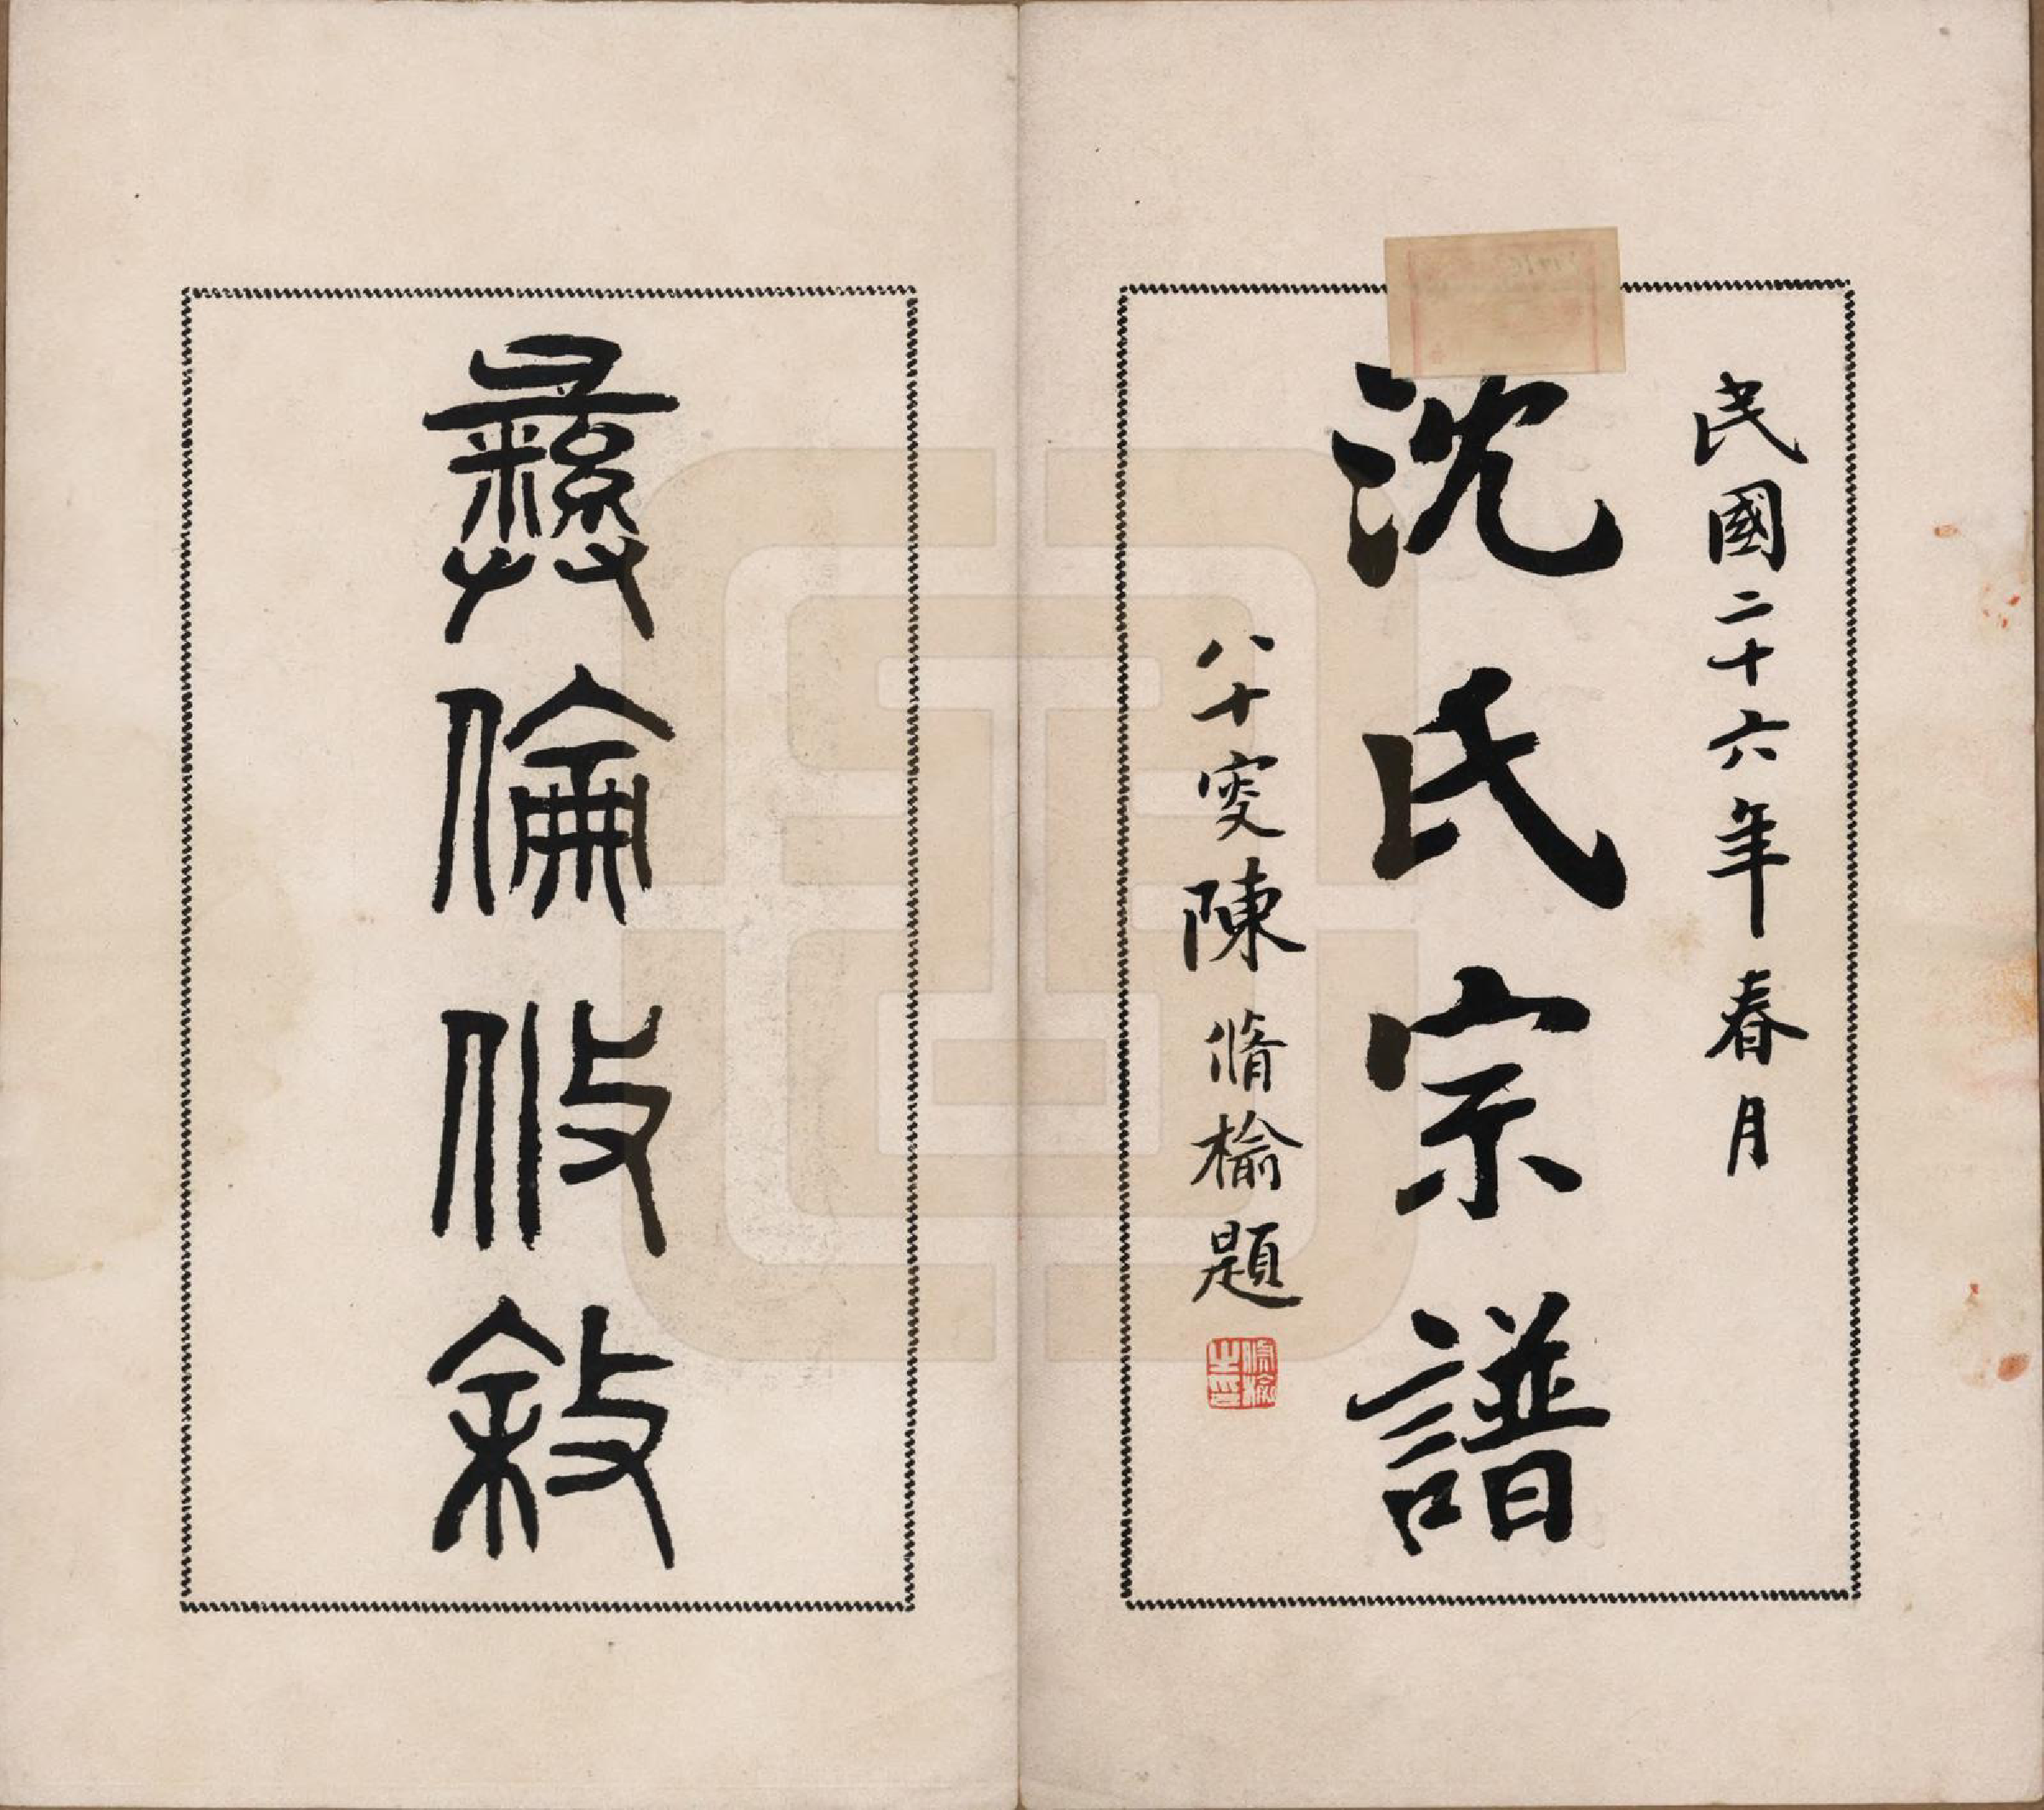 民國二十六年春月
沈氏宗譜
八十叟陳脩榆題
脩榆之印
彝倫攸敘